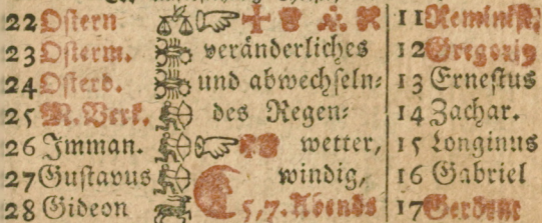 22 Ostern 11 Reminiſc.
23 Oſterm. veränderliches 12 Gregorig
24 Oſterd. und abwechſeln⸗ 13 Erneſtus
25 M. Verk. des Regen⸗ 14 Zachar.
26 Imman. wetter, 15 Longinus
27 Guſtavus windig, 16 Gabriel
28 Gideon 5,7. Abends 17